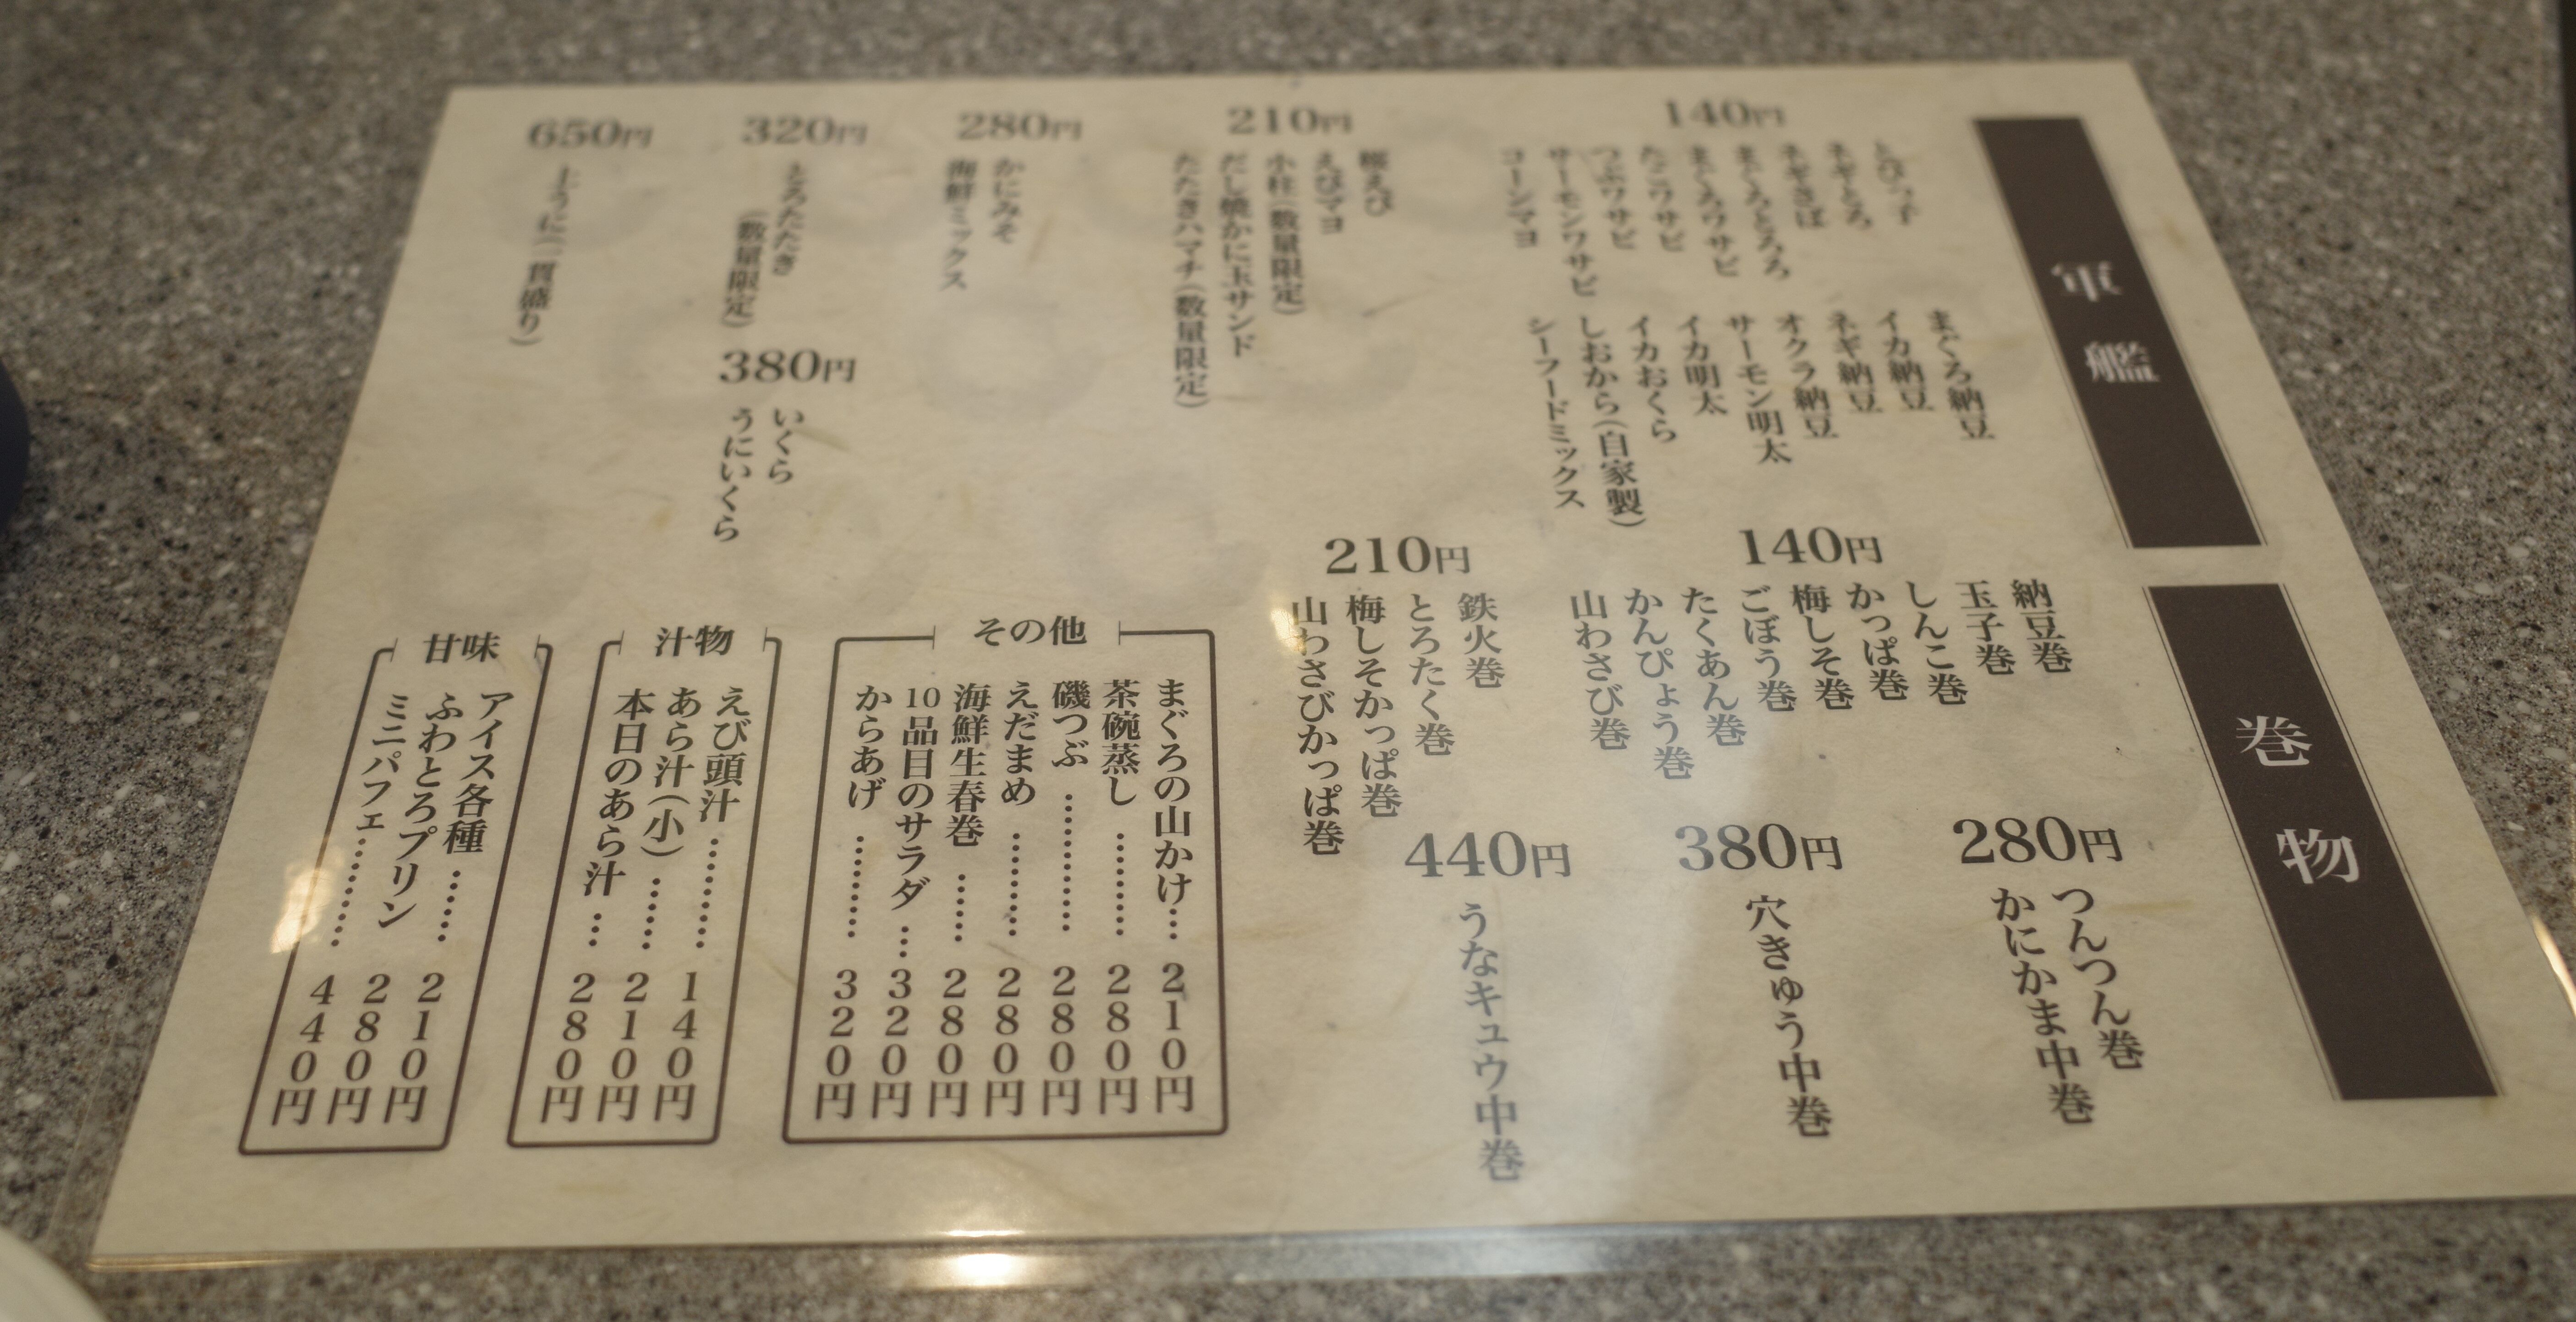 軍艦
140円
とびっ子
ネギとろ
ネギさば
まぐろとろろ
まぐろワサビ
たこワサビ
つぶワサビ
サーモンワサビ
コーンマヨ
まぐろ納豆
イカ納豆
ネギ納豆
オクラ納豆
サーモン明太
イカ明太
イカおくら
しおから(自家製)
シーフードミックス
210円
桜えび
えびマヨ
小柱(数量限定)
だし焼かに玉サンド
たたきハマチ(数量限定)
280円
かにみそ
海鮮ミックス
320円
とろたたき
(数量限定)
380円
いくら
うにいくら
650円
上うに(一貫盛り)
巻物
140円
納豆巻
玉子巻
しんこ巻
かっぱ巻
梅しそ巻
ごぼう巻
たくあん巻
かんぴょう巻
山わさび巻
210円
鉄火巻
とろたく巻
梅しそかっぱ巻
山わさびかっぱ巻
280円
つんつん巻
かにかま中巻
380円
穴きゅう中巻
440円
うなキュウ中巻
その他
まぐろの山かけ…210円
茶碗蒸し…………280円
磯つぶ……………280円
えだまめ…………280円
海鮮生春巻……280円
10品目のサラダ…320円
からあげ…………320円
汁物
えび頭汁…………140円
あら汁(小)……210円
本日のあら汁…280円
甘味
アイス各種……210円
ふわとろプリン 280円
ミニパフェ…………440円